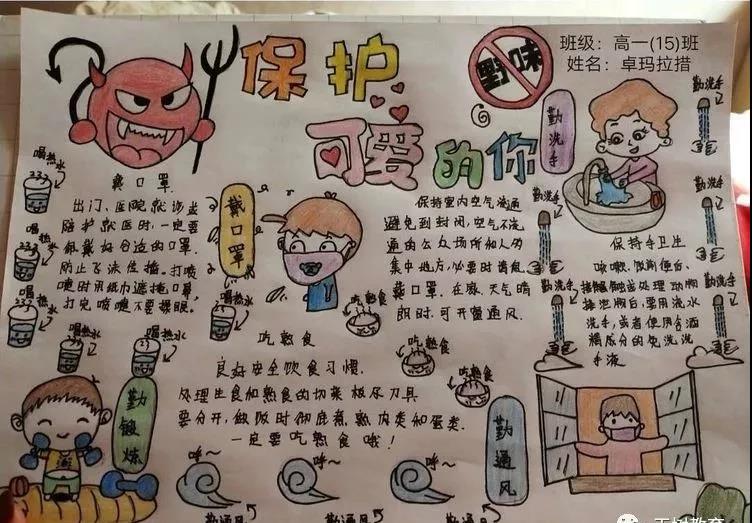 保护
可爱的你
野味
班级：高一(15)班
姓名：卓玛拉措
戴口罩
出门、医院就诊或
陪护就医时，一定要
佩戴好合适的口罩
防止飞沫传播。打喷
嚏时用纸巾遮掩口罩，
打完喷嚏不要揉眼。
戴口罩
保持室内空气流通
避免到封闭，空气不流
通的公众场所和人多
集中地方，必要时请佩
戴口罩。在家，天气晴
朗时，可开窗通风。
勤洗手
勤洗手
勤洗手
勤洗手
勤洗手
勤洗手
保持手卫生
咳嗽、饭前便后、
排泄物后，要用流水
洗手，或者使用含酒
精成分的免洗洗
手液
喝热水
喝热水
喝热水
喝热水
喝热水
喝热水
吃熟食
良好安全饮食习惯，
处理生食和熟食的切菜板及刀具
要分开，做饭时彻底煮熟肉类和蛋类。
一定要吃熟食哦！
吃熟食
吃熟食
勤锻炼
勤通风
呼～
呼～
勤通风
勤通风
勤通风